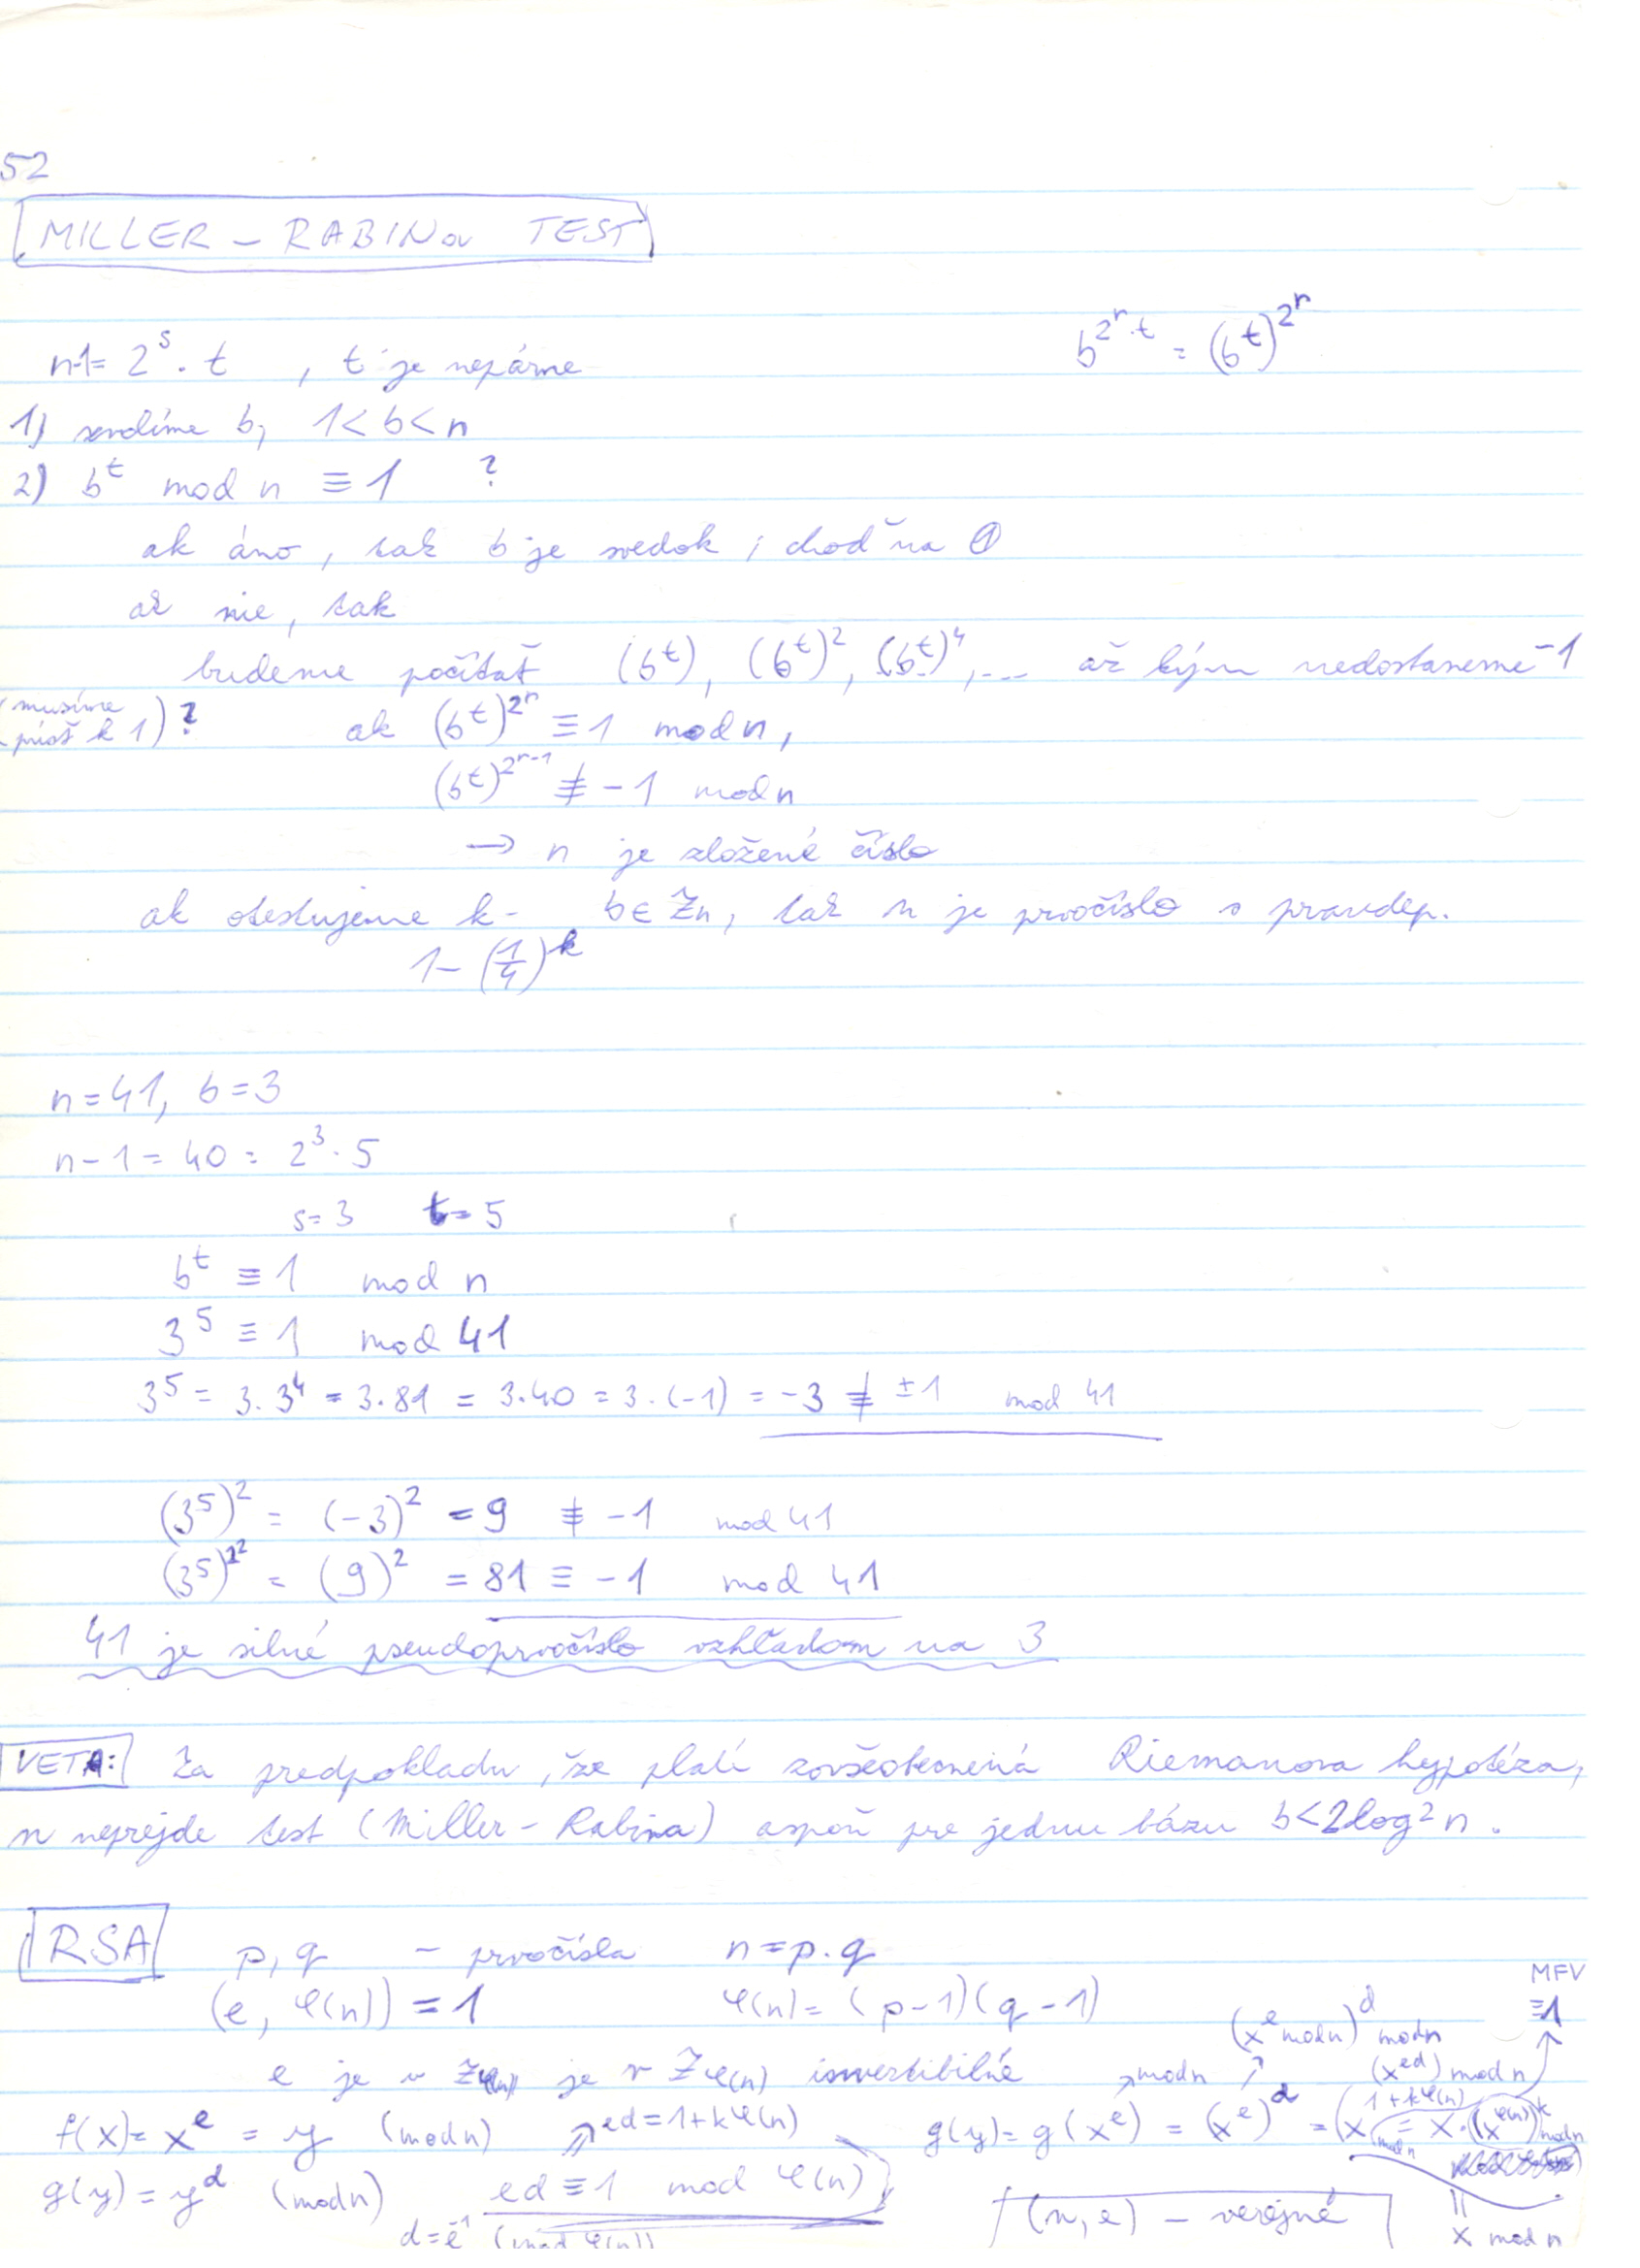 52
MILLER – RABINov TEST
n-1 = 2^s . t , t je nepárne
b^{2^r . t} = (b^t)^{2^r}
1) zvolíme b, 1 < b < n
2) b^t mod n ≡ 1 ?
ak áno, tak b je svedok ; choď na ①
ak nie, tak
budeme počítať (b^t), (b^t)^2, (b^t)^4, ... až kým nedostaneme -1
(musíme prísť k 1) ? ak (b^t)^{2^r} ≡ 1 mod n,
(b^t)^{2^{r-1}} ≢ -1 mod n
→ n je zložené číslo
ak otestujeme k - b ∈ Zn, tak n je prvočíslo s pravdep.
1 - (1/4)^k
n = 41, b = 3
n - 1 = 40 = 2^3 . 5
s = 3 t = 5
b^t ≡ 1 mod n
3^5 ≡ 1 mod 41
3^5 = 3 . 3^4 = 3 . 81 = 3 . 40 = 3 . (-1) = -3 ≢ ±1 mod 41
(3^5)^2 = (-3)^2 = 9 ≢ -1 mod 41
(3^5)^{2^2} = (9)^2 = 81 ≡ -1 mod 41
41 je silné pseudoprvočíslo vzhľadom na 3
VETA: Za predpokladu, že platí zovšeobecnená Riemanova hypotéza,
n neprejde test (Miller - Rabina) aspoň pre jednu bázu b < 2log^2 n .
RSA p, q – prvočísla n = p . q
MFV
(e, φ(n)) = 1 φ(n) = (p - 1)(q - 1) (x^e mod n)^d mod n ≡ 1
e je v Zφ(n) je v Zφ(n) invertibilné mod n (x^{ed}) mod n
f(x) = x^e = y (mod n) ed = 1 + kφ(n) g(y) = g(x^e) = (x^e)^d = (x^{1 + kφ(n)} mod n = x . (x^{φ(n)})^k mod n
g(y) = y^d (mod n) ed ≡ 1 mod φ(n) (n, e) – verejné
d = e^{-1} (mod φ(n)) x mod n